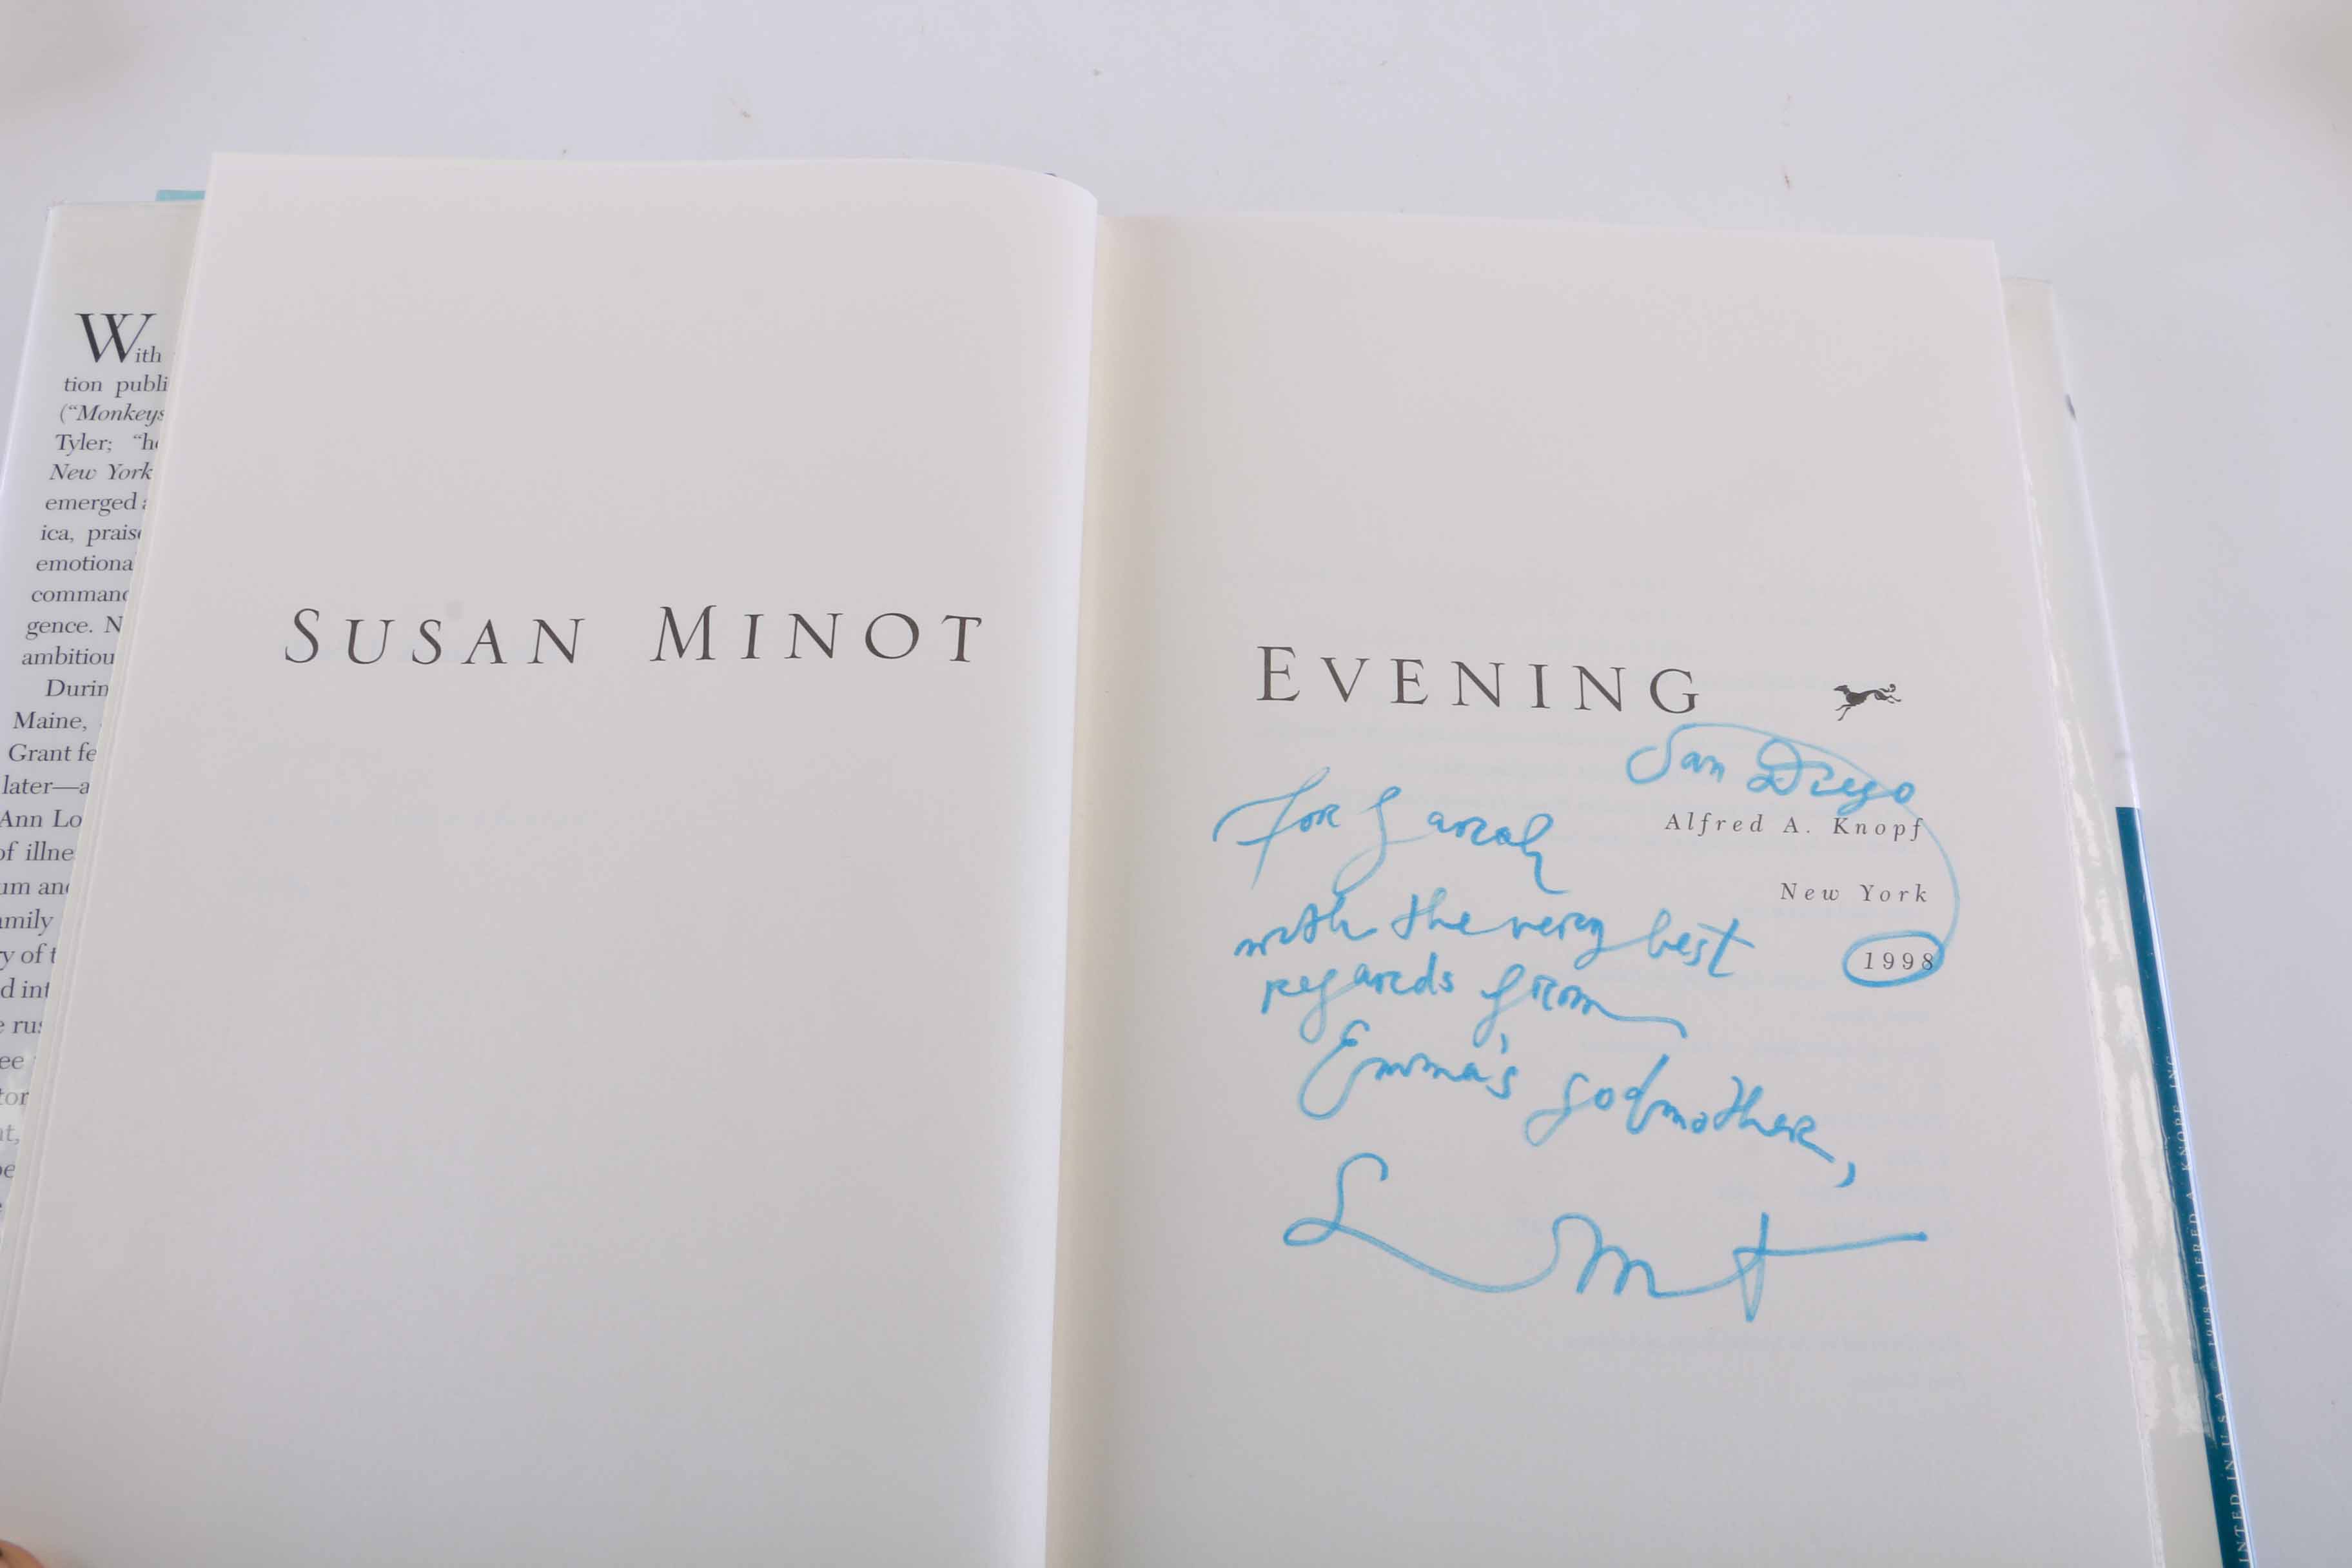 With
tion publi
("Monkeys
Tyler; "he
New York
emerged a
ica, praise
emotiona
command
gence. N
ambitiou
Durin
Maine,
Grant fe
later—a
Ann Lo
of illne
um and
amily
y of t
d int
e rus
ee
tor
at,
be
SUSAN MINOT
EVENING
San Diego
For Sarah
Alfred A. Knopf
New York
with the very best
1998
regards from
Emma's godmother,
S Mt
PRINTED IN U.S.A. © 1998 ALFRED A. KNOPF, INC.